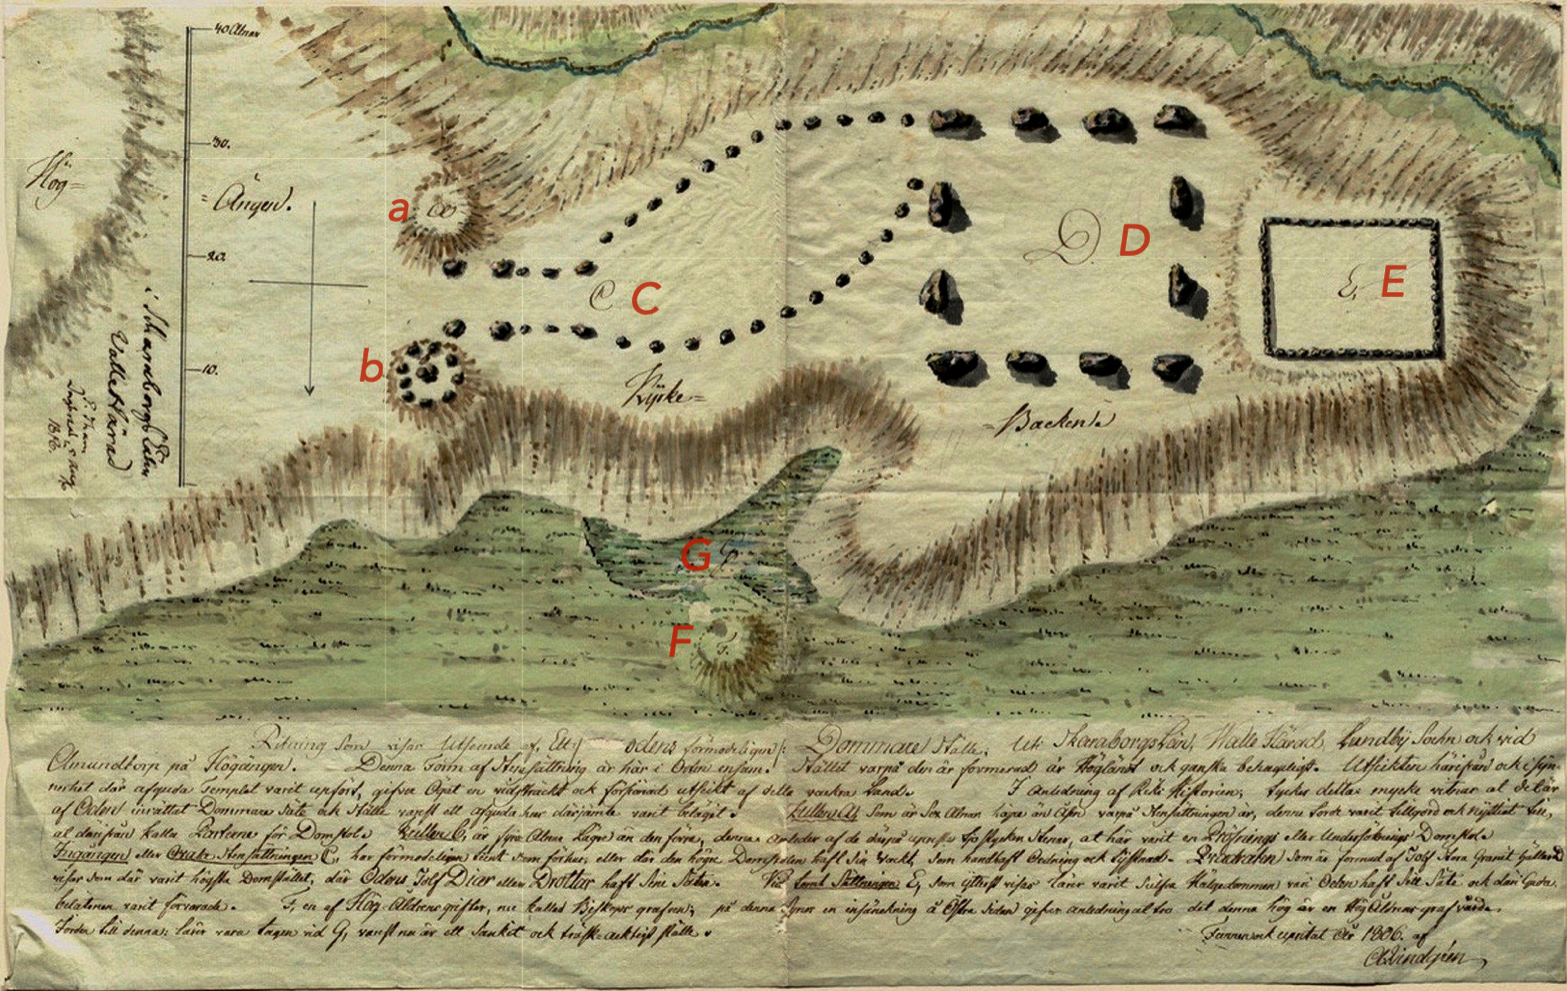 40 Alnar
30.
20.
10.
Hög=
=Ängen.
a
a
b
C C
D D
E E
Kyrke=
=Backen.
G
F F
i Skaraborgs Län
Valle Härad
1810.
Ritning som visar Utseende af, Ett odens förmodeligen Domare Säte, Uti Skaraborgs Län, Walle Härad, Lundby Sochn och vid
Amundtorp på Högängen. Denna Form af Stensättning är här i Orten ensam. Stället varpå den är formerad är Högländt och ganska behageligt. Utsikten härifrån och i syn-
nerhet där afguda Templet varit upfört, gifver Ögat en vidsträckt och förtjusad utsikt af detta vackra Land. I anledning af Rikc Historien, tyckes detta mycke vitnar at det är
af Oden inrättat Domare Säte och Ställe varest ett afguda hus därjämte varit beläget. Kullen a, som är Sex Alnar högre än Åsen varpå Stensättningen är, denna torde varit tillgjord och nyttjat till,
at därifrån kalla Parterne för Domstol. Kullen b, är fyra Alnar Lägre än den förra, denna anleder af de därpå upreste Stenar, at här varit en Pröfnings eller Undersöknings Domstol.
Ingången eller Stensättningen C, har förmodeligen tient som förhus, eller där den högre Domstolen haft sin Vackt, som handhaft Ordning och Quadraten som är formad af Tolf Stora Granit Gällard
visar som där varit högsta Domstället, där Odens Tolf Diar eller Drottar haft sine Säten. Vid Sättningen E, som visar lärer varit Sielfva Hälgedommen vari Oden haft Sitt Säte och dari Guda
belätenen varit förvarade. F, en af Hög-Aldrens grifter, nu kallad Biskops grafven, på denna synes en insänckning å Östra Sidan gifver anledning at tro det denna hög är en Högåldrens graf vårde.
Jorden till denna: lärer vara tagen vid G, varest nu är ett Sankt och träsk-acktigt ställe.
Funnen och upritat År 1806. af
CLindgren